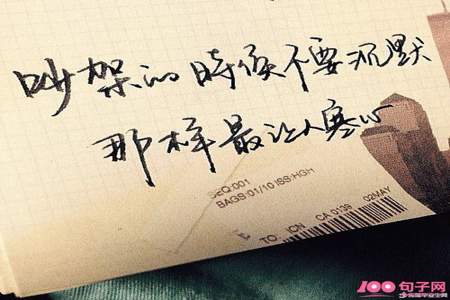 吵架的時候不要沉默
那样最让人寒心
SEQ:001
BAGS:01/10 ISS:HGH
TO ICN CA 0139 02MAY
100句子网